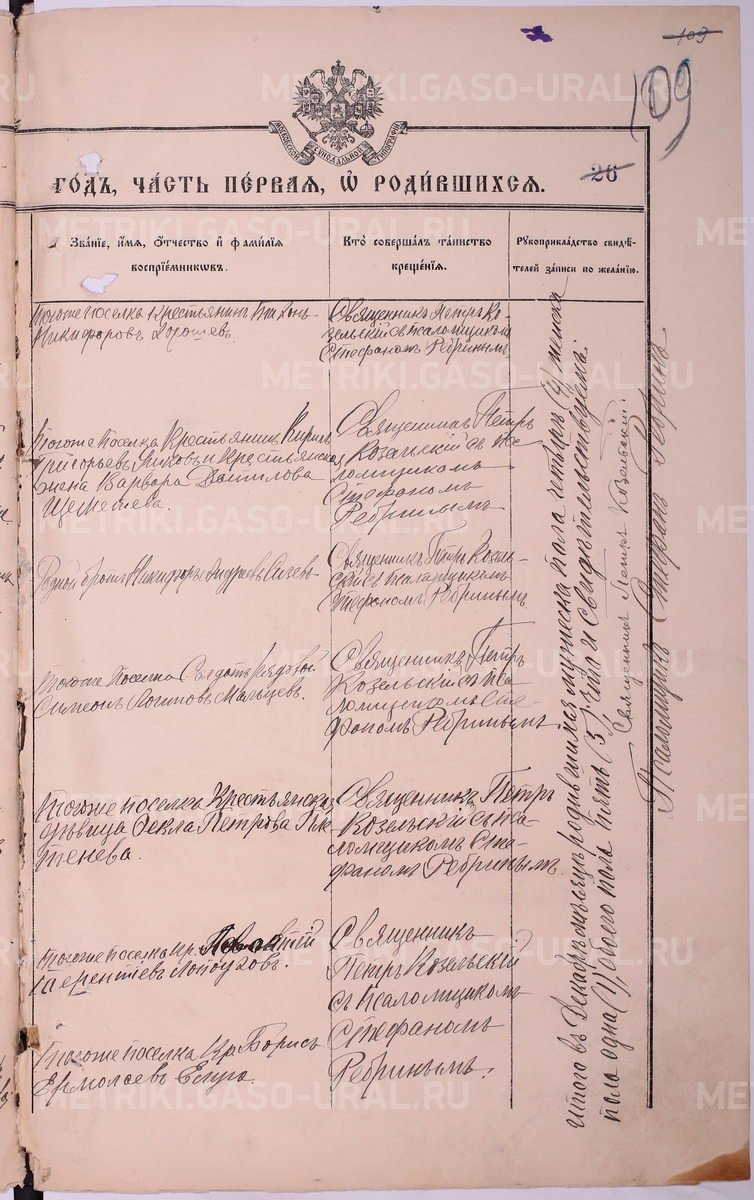 109
109
МОСКОВСКОЙ СѴНОДАЛЬНОЙ ТИПОГРАФІИ
METRIKI.GASO-URAL.RU
го́дъ, ча́сть пе́рвая, ѡ҆ роди́вшихся.
26
Зва́нїе, и҆́мя, ѻ҆́тчество и҆ фами́лїя
воспрїе́мникѡвъ.
Кто̀ соверша́лъ та́инство
креще́нїя.
Рꙋкоприкла́дство свидѣ́-
телей за́писи по жела́нїю.
Тогоже поселка крестьянинъ
Никифоровъ Хорошевъ.
Священникъ Петръ Ко-
зельскій съ псаломщикомъ
Стефаномъ Ребринымъ
Тогоже поселка Крестьянинъ Кирилъ
Григорьевъ и крестьянская
жена Варвара Данилова
Священникъ Петръ
Козельскій съ пса-
ломщикомъ
Стефаномъ
Ребринымъ
Родной братъ Никифоръ Андреевъ
Священникъ Петръ Козель-
скій съ псаломщикомъ
Стефаномъ Ребринымъ.
Тогоже поселка Солдатъ рядовой
Симеонъ Логиновъ Мальцевъ.
Священникъ Петръ
Козельскій съ пса-
ломщикомъ Сте-
фаномъ Ребринымъ
Тогоже поселка Крестьянская
дѣвица Фекла Петрова Пле-
тенева.
Священникъ Петръ
Козельскій съ пса-
ломщикомъ Сте-
фаномъ Ребринымъ.
Тогоже поселка кр.
Терентьевъ
Священникъ
Петръ Козельскій
съ псаломщикомъ
Стефаномъ
Ребринымъ.
Тогоже поселка Кр. Борисъ
Ермолаевъ
Итого в Декабрѣ мѣсяцѣ родившихся мужеска пола четыре (4) женска
пола одна (1), обоего пола пять (5). Что и свидѣтельствуемъ:
Священникъ Петръ Козельскій
Псаломщикъ Стефанъ Ребринъ